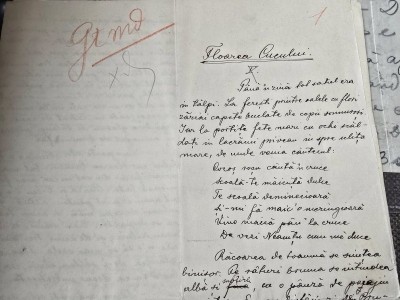 Gt md
1
Floarea Cucului.
V.
Până 'n ziuă tot satul era
în tălpi. La ferești printre oalele cu flori
zăreai capete buclate de copii somnoroși
Iar la portițe fete mari cu ochi scăl-
dați în lacrămi priveau în spre ulița
mare, de unde venea cântecul:
Cocoș roșu cântă 'n cruce
Scoală-te măicuță dulce
Te scoală demineicioară
Și-mi fă maic' o merinzioară
Vino maică pân' la cruce
Da vezi Neamțu cum mă duce
Răcoarea de toamnă se simțea
binișor. Pe rături bruma se întindea
albă și subțire, ca o pânză de